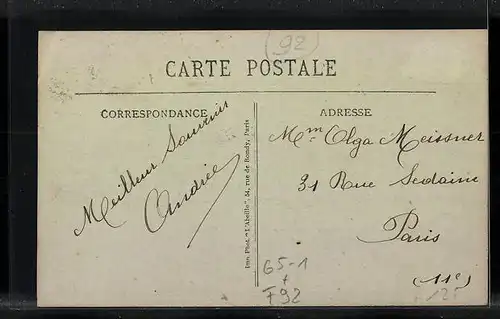 (92)
CARTE POSTALE
CORRESPONDANCE
Meilleur Souvenir
Andrée
Imp. Phot. "L'Abeille", 54, rue de Bondy, Paris
ADRESSE
Mme Olga Meissner
31 Rue Sedaine
Paris
(11e)
65-1
+
F92
125